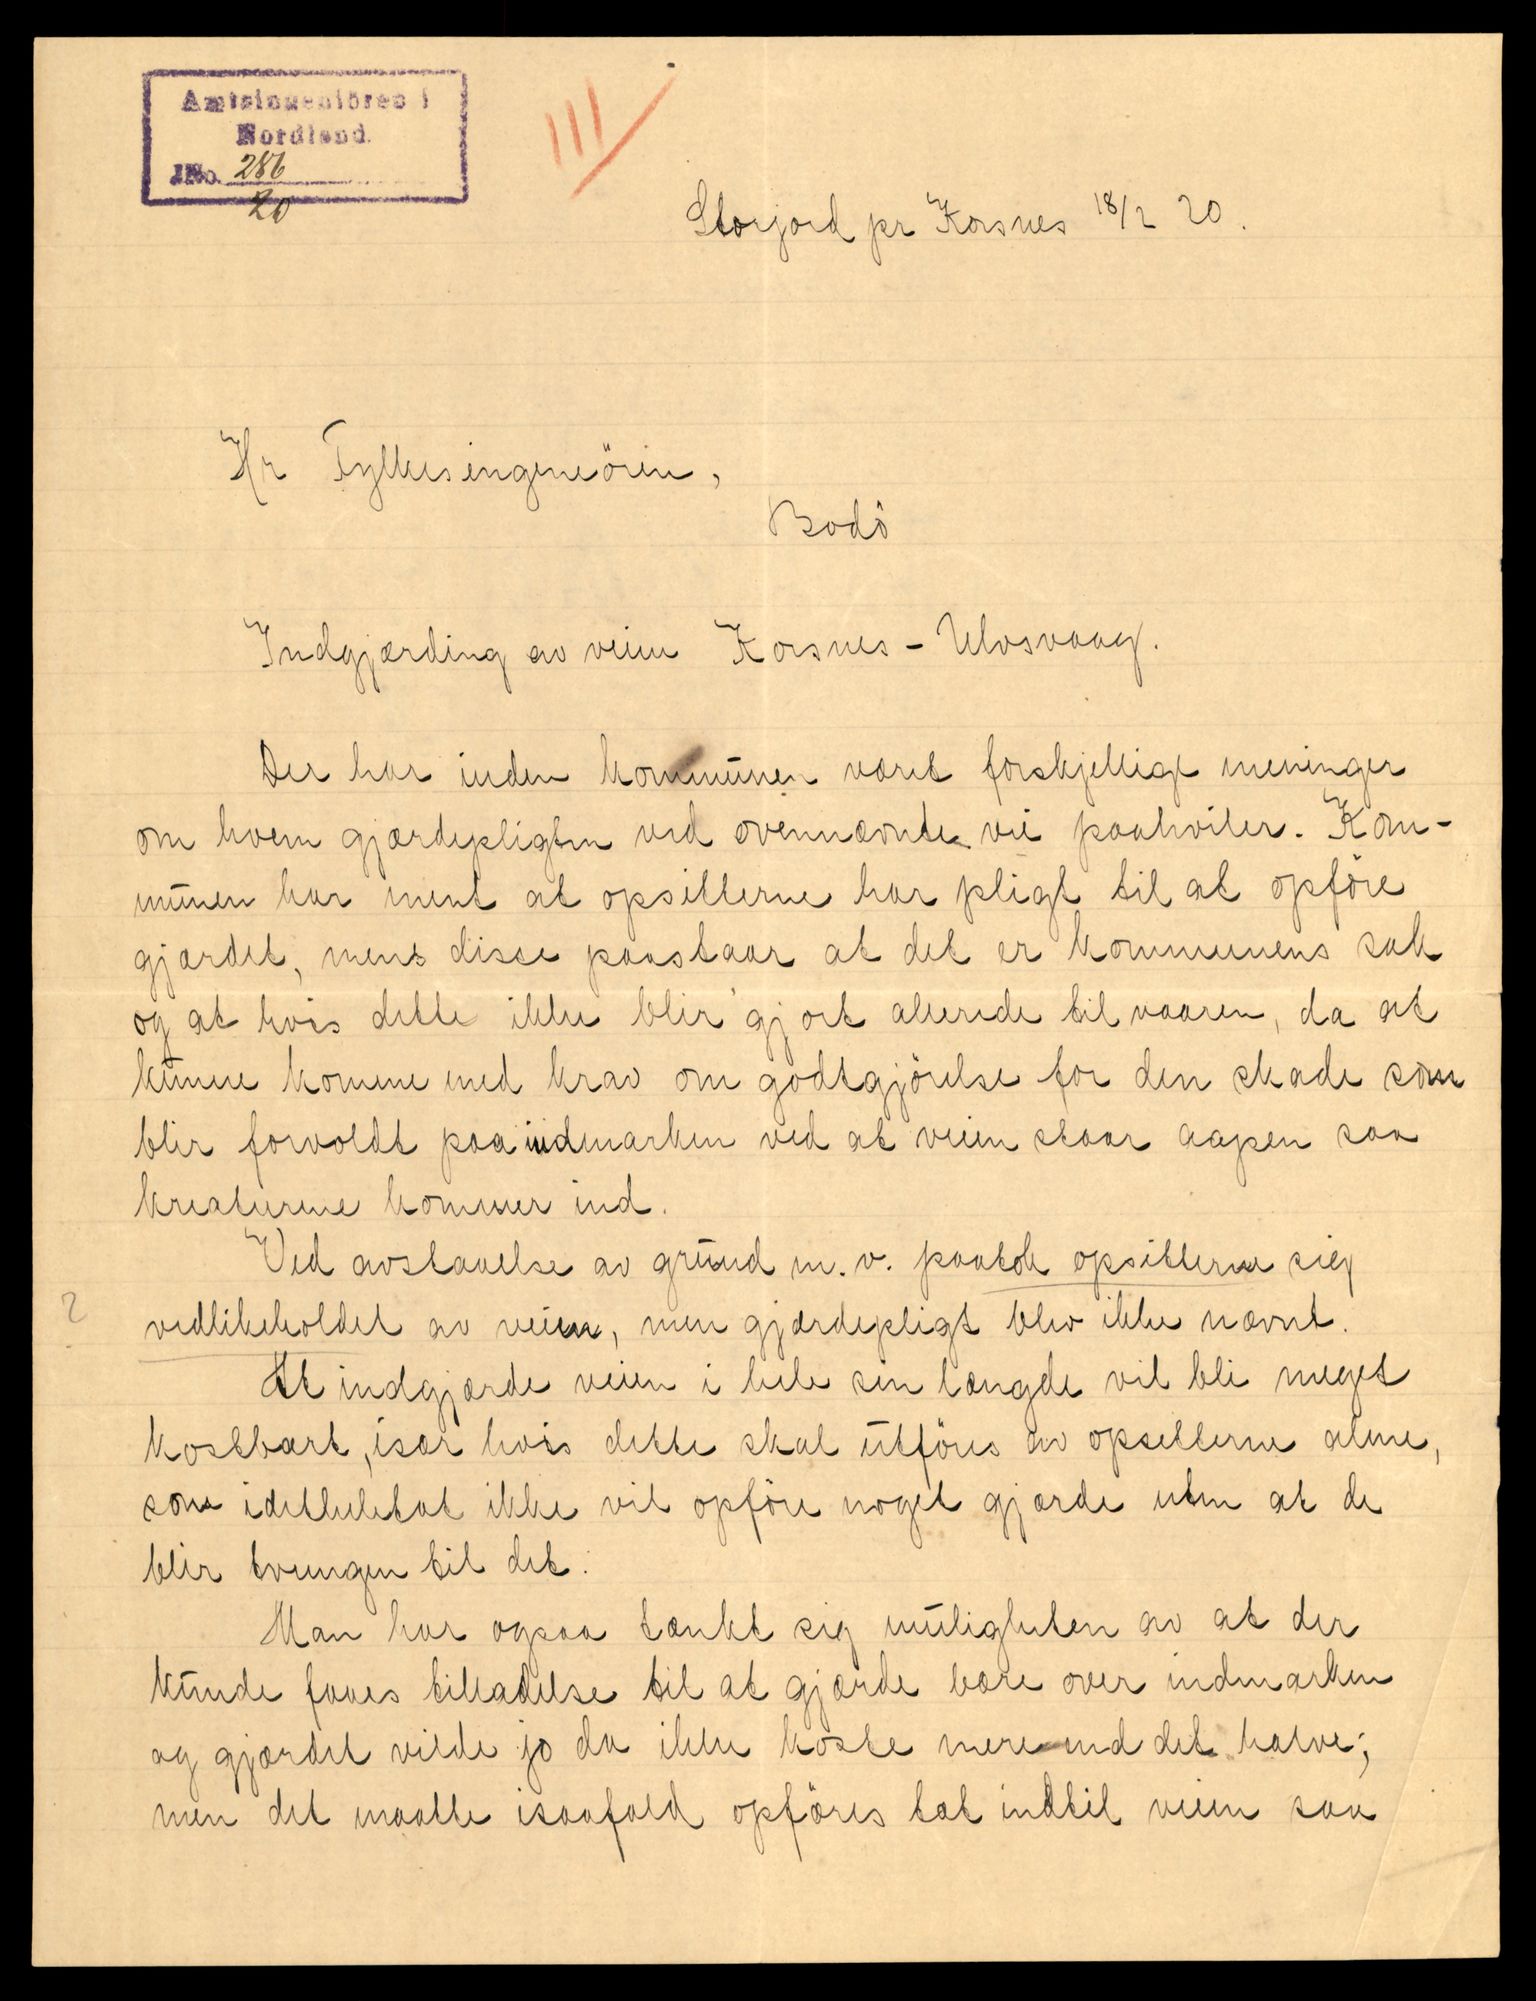 Amtsingeniören i
Nordland.
JNo. 286
20
III
Storjord pr Korsnes 18/2 20.
Hr Fylkesingeneören,
Bodö
Indgjærding av veien Korsnes - Ulvsvaag.
Der har inden kommunen været forskjellige meninger
om hvem gjærdepligten ved ovennævnte vei paahviler. Kom-
munen har ment at opsitterne har pligt til at opföre
gjærdet, mens disse paastaar at det er kommunens sak
og at hvis dette ikke blir gjort allerede til vaaren, da at
kunne komme med krav om godtgjörelse for den skade som
blir forvoldt paa indmarken ved at veien staar aapen saa
kreaturene kommer ind.
Ved avstaaelse av grund m.v. paatok opsitterne sig
2
vedlikeholdet av veien, men gjærdepligt blev ikke nævnt.
At indgjærde veien i hele sin længde vil bli meget
kostbart, især hvis dette skal utföres av opsitterne alene,
som idetheletat ikke vil opföre noget gjærde uten at de
blir tvungen til det.
Man har ogsaa tænkt sig muligheten av at der
kunde faaes tilladelse til at gjærde bare over indmarken
og gjærdet vilde jo da ikke koste mere end det halve;
men det maatte isaafald opføres tæt indtil veien saa